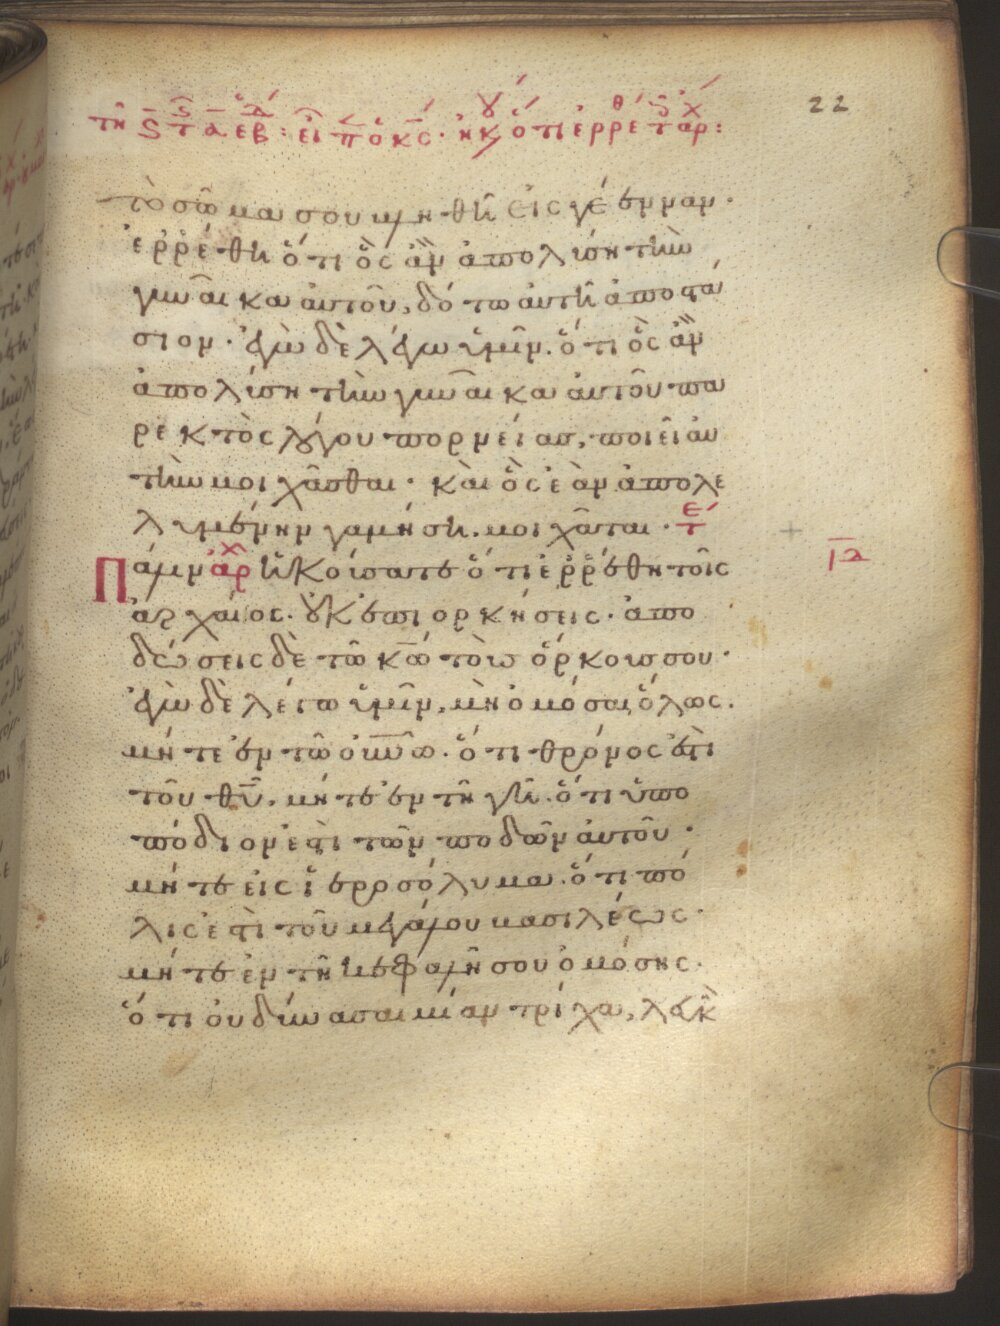 22
τῆ ϛ τ α ἑβδ : εἶπ ὁ κς · ἠκού ὅτι ἐρρεθ τ ἀρχ :
τὸ σῶμα σου βληθῆ εἰς γέενναν ·
ἐρρέθη ὅτι ὃς ἂν ἀπολύση τὴν
γυναῖκα αὐτοῦ, δότω αὐτῆ ἀποστά
σιον · ἐγὼ δὲ λέγω ὑμῖν. ὅτι ὃς ἂν
ἀπολύση τὴν γυναῖκα αὐτοῦ πα
ρεκτὸς λόγου πορνείας, ποιεῖ αὐ
τὴν μοιχᾶσθαι · καὶ ὃς ἐὰν ἀπολε
λυμένην γαμήση. μοιχᾶται · τέ
Πάλιν ἀρχ ἠκούσατε ὅτι ἐρρέθη τοῖς
ἀρχαίοις · οὐκ ἐπιορκήσεις · ἀπο
δώσεις δὲ τῶ κω τοὺς ὅρκους σου ·
ἐγὼ δὲ λέγω ὑμῖν, μὴ ὀμόσαι ὅλως.
μήτε ἐν τῶ οὐνῶ · ὅτι θρόνος ἐστὶ
τοῦ θυ, μήτε ἐν τῆ γῆ. ὅτι ὑπο
πόδιον ἐστὶ τῶν ποδῶν αὐτοῦ ·
μήτε εἰς ἱεροσόλυμα. ὅτι πό
λις ἐστὶ τοῦ μεγάλου βασιλέως ·
μήτε ἐν τῆ κεφαλῆ σου ὀμόσης ·
ὅτι οὐ δύνασαι μίαν τρίχα, λευκ